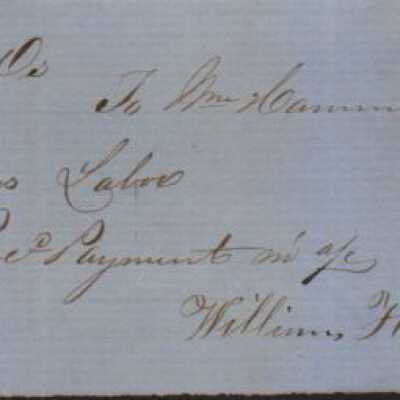 Dr
To Wm Hamm
s Labor
Recd Payment in a/c
William H